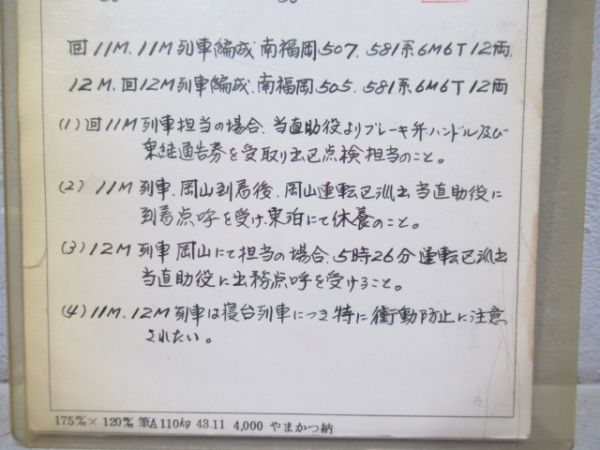 回11M. 11M列車編成 南福岡507. 581系6M6T12両.
12M. 回12M列車編成. 南福岡505. 581系6M6T12両
(1) 回11M列車担当の場合. 当直助役よりブレーキ弁ハンドル及び
乗継通告券を受取り出区点検担当のこと。
(2) 11M列車. 岡山到着後. 岡山運転区派出当直助役に
到着点呼を受け. 東泊にて休養のこと。
(3) 12M列車岡山にて担当の場合. 5時26分運転区派出
当直助役に出務点呼を受けること。
(4) 11M. 12M列車は寝台列車につき特に衝動防止に注意
されたい。
175㎜×120㎜ 筆A110kg 43.11 4,000 やまかつ納